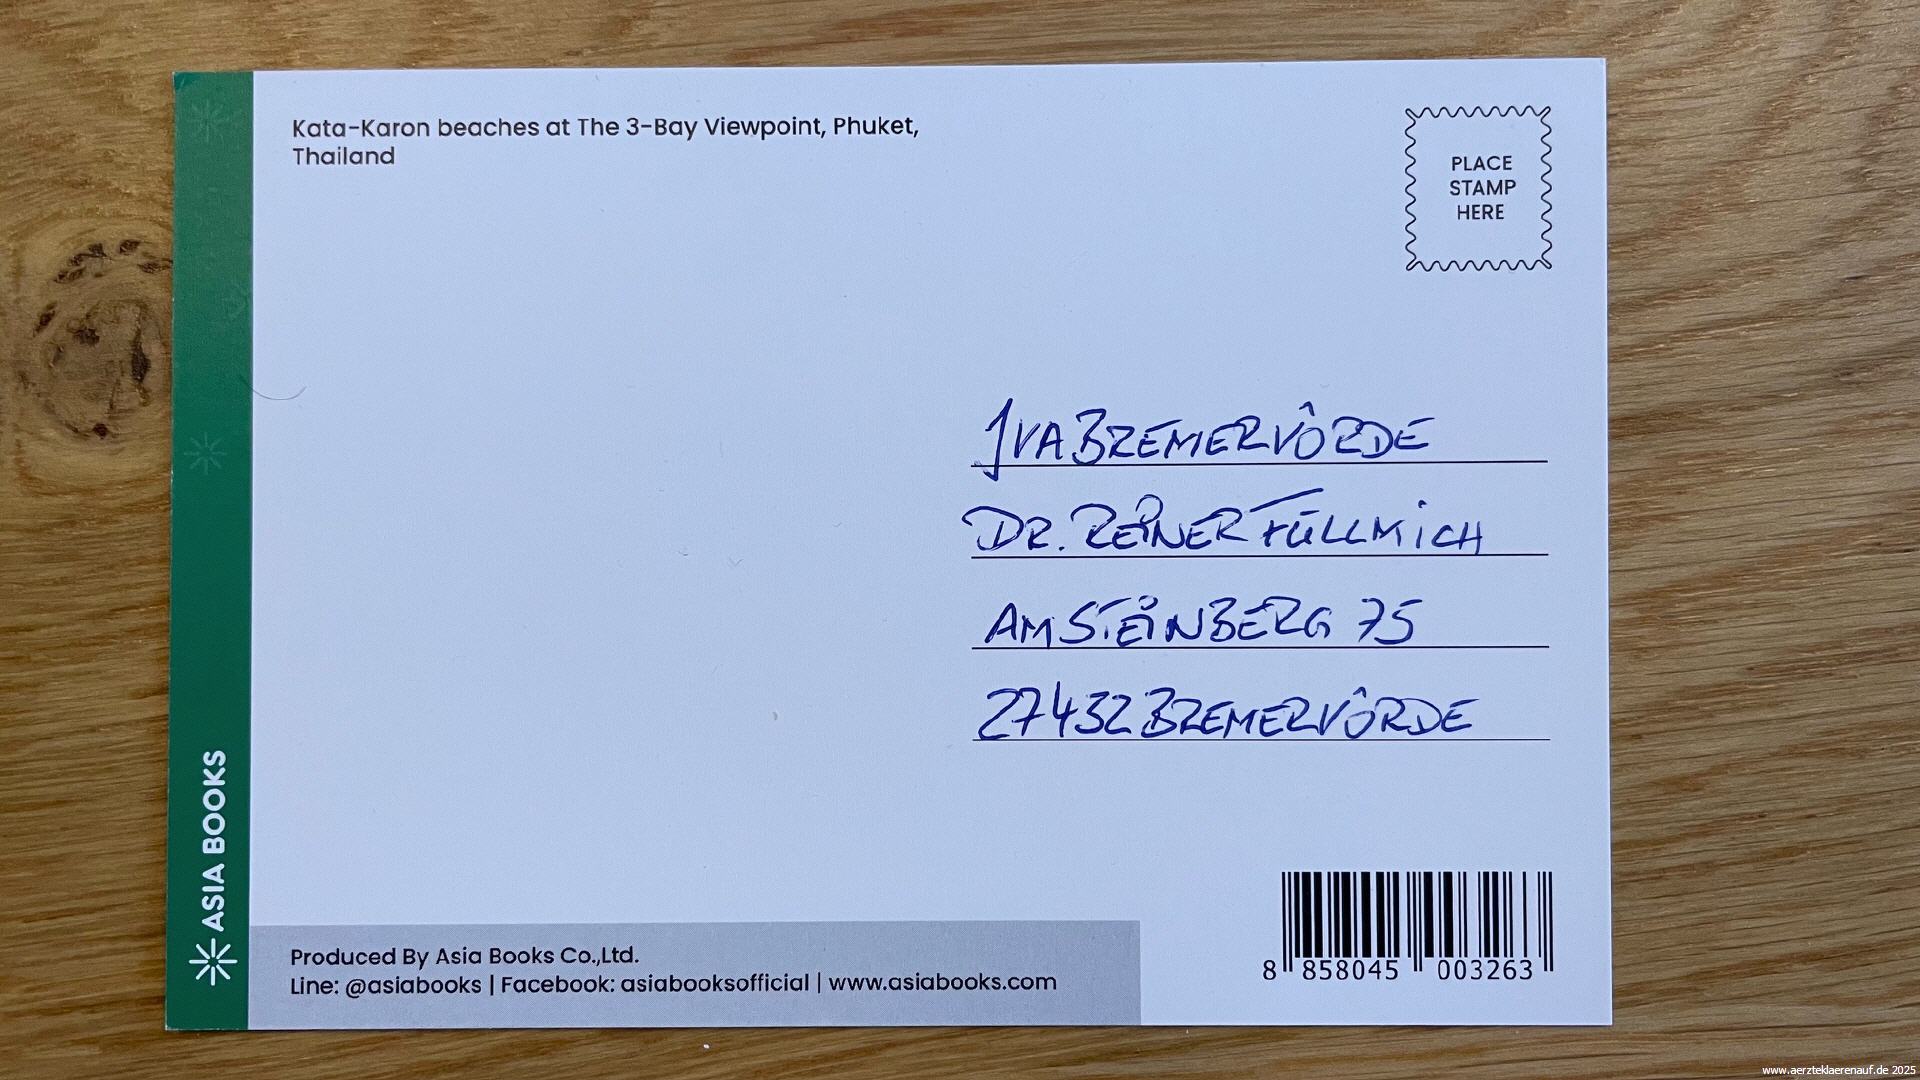 Kata-Karon beaches at The 3-Bay Viewpoint, Phuket,
Thailand
PLACE
STAMP
HERE
JVA BREMERVÖRDE
DR. REINER FÜLLMICH
AM STEINBERG 75
27432 BREMERVÖRDE
ASIA BOOKS
Produced By Asia Books Co.,Ltd.
Line: @asiabooks | Facebook: asiabooksofficial | www.asiabooks.com
8 858045 003263
www.aerzteklaerenauf.de 2025